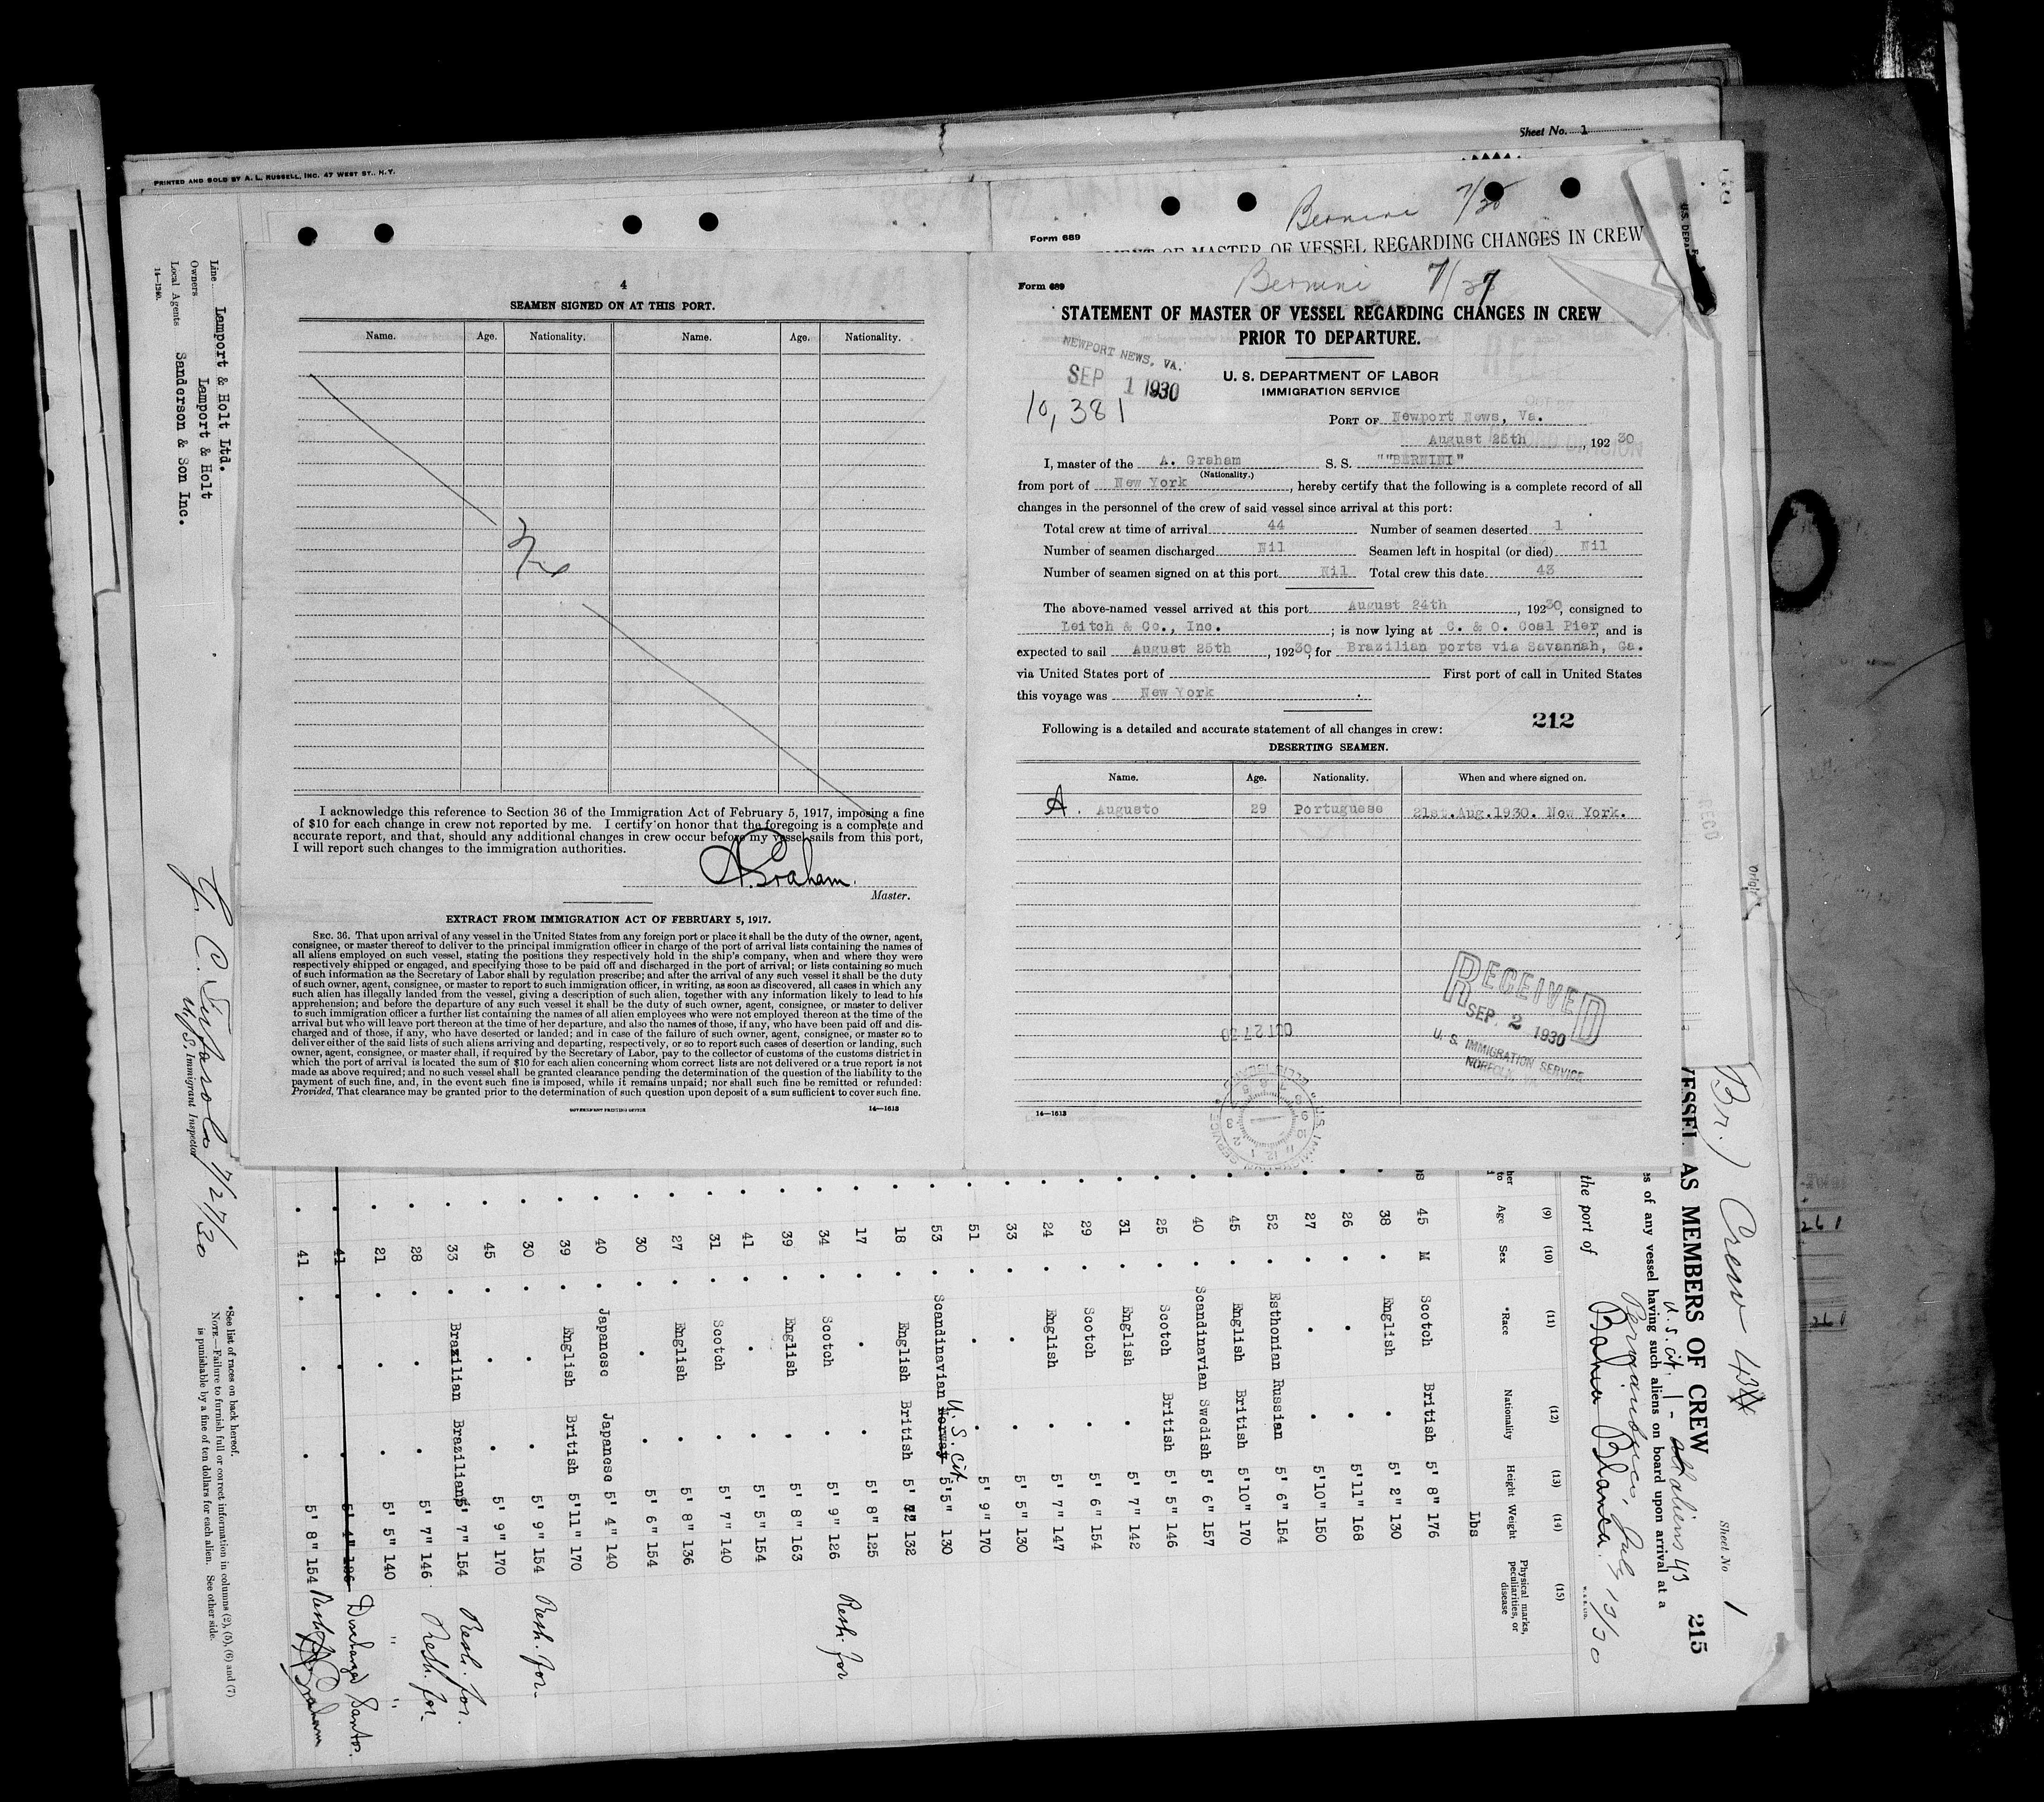 Sheet No. 1
PRINTED AND SOLD BY A. L. RUSSELL, INC. 47 WEST ST., N.Y.
Bernini 7/28
Form 689
MENT OF MASTER OF VESSEL REGARDING CHANGES IN CREW
4
SEAMEN SIGNED ON AT THIS PORT.
Name. Age. Nationality. Name. Age. Nationality.
I acknowledge this reference to Section 36 of the Immigration Act of February 5, 1917, imposing a fine
of $10 for each change in crew not reported by me. I certify on honor that the foregoing is a complete and
accurate report, and that, should any additional changes in crew occur before my vessel sails from this port,
I will report such changes to the immigration authorities.
A. Graham.
Master.
EXTRACT FROM IMMIGRATION ACT OF FEBRUARY 5, 1917.
SEC. 36. That upon arrival of any vessel in the United States from any foreign port or place it shall be the duty of the owner, agent,
consignee, or master thereof to deliver to the principal immigration officer in charge of the port of arrival lists containing the names of
all aliens employed on such vessel, stating the positions they respectively hold in the ship's company, when and where they were
respectively shipped or engaged, and specifying those to be paid off and discharged in the port of arrival; or lists containing so much
of such information as the Secretary of Labor shall by regulation prescribe; and after the arrival of any such vessel it shall be the duty
of such owner, agent, consignee, or master to report to such immigration officer, in writing, as soon as discovered, all cases in which any
such alien has illegally landed from the vessel, giving a description of such alien, together with any information likely to lead to his
apprehension; and before the departure of any such vessel it shall be the duty of such owner, agent, consignee, or master to deliver
to such immigration officer a further list containing the names of all alien employees who were not employed thereon at the time of the
arrival but who will leave port thereon at the time of her departure, and also the names of those, if any, who have been paid off and dis-
charged and of those, if any, who have deserted or landed; and in case of the failure of such owner, agent, consignee, or master so to
deliver either of the said lists of such aliens arriving and departing, respectively, or so to report such cases of desertion or landing, such
owner, agent, consignee, or master shall, if required by the Secretary of Labor, pay to the collector of customs of the customs district in
which the port of arrival is located the sum of $10 for each alien concerning whom correct lists are not delivered or a true report is not
made as above required; and no such vessel shall be granted clearance pending the determination of the question of the liability to the
payment of such fine, and, in the event such fine is imposed, while it remains unpaid; nor shall such fine be remitted or refunded:
Provided, That clearance may be granted prior to the determination of such question upon deposit of a sum sufficient to cover such fine.
GOVERNMENT PRINTING OFFICE 14—1613
Form 689
Bernini 7/27
STATEMENT OF MASTER OF VESSEL REGARDING CHANGES IN CREW
PRIOR TO DEPARTURE.
NEWPORT NEWS, VA.
SEP 1 1930
10,381
U. S. DEPARTMENT OF LABOR
IMMIGRATION SERVICE
PORT OF Newport News, Va.
August 25th, 1930
I, master of the A. Graham S. S. ""BERNINI"
(Nationality.)
from port of New York, hereby certify that the following is a complete record of all
changes in the personnel of the crew of said vessel since arrival at this port:
Total crew at time of arrival 44 Number of seamen deserted 1
Number of seamen discharged Nil Seamen left in hospital (or died) Nil
Number of seamen signed on at this port Nil Total crew this date 43
The above-named vessel arrived at this port August 24th, 19230, consigned to
Leitch & Co., Inc.; is now lying at C. & O. Coal Pier, and is
expected to sail August 25th, 19230, for Brazilian ports via Savannah, Ga.
via United States port of First port of call in United States
this voyage was New York.
212
Following is a detailed and accurate statement of all changes in crew:
DESERTING SEAMEN.
Name. Age. Nationality. When and where signed on.
A. Augusto 29 Portuguese 21st.Aug.1930. New York.
RECEIVED
SEP. 2 1930
U. S. IMMIGRATION SERVICE
NORFOLK, VA.
OCT 27 30
U.S. IMMIGRATION SERVICE
14—1613
Line Lamport & Holt Ltd.
Owners Lamport & Holt
Local Agents Sanderson & Son Inc.
14—1240.
7/27/30
U.S. Immigrant Inspector
*See list of races on back hereof.
NOTE.—Failure to furnish full or correct information in columns (2), (5), (6) and (7)
is punishable by a fine of ten dollars for each alien. See other side.
(Br.) Crew 43
Sheet No. 1
VESSEL AS MEMBERS OF CREW 215
U.S. cit. 1 - aliens 43
es of any vessel having such aliens on board upon arrival at a
Pernambuco, July 13/30
the port of Bahia Blanca.
(9) (10) (11) (12) (13) (14) (15)
Age Sex *Race Nationality Height Weight Physical marks, peculiarities, or disease
Lbs
45 M Scotch British 5' 8" 176
38 " English " 5' 2" 130
26 " " " 5'11" 168
27 " " " 5'10" 150
52 " Esthonian Russian 5' 6" 154
45 " English British 5'10" 170
40 " Scandinavian Swedish 5' 6" 157
25 " Scotch British 5' 5" 146
31 " English " 5' 7" 142
29 " Scotch " 5' 6" 154
24 " English " 5' 7" 147
33 " " " 5' 5" 130
51 " " " 5' 9" 170
53 " Scandinavian Norway U.S. Cit. 5'5" 130
18 " English British 5' 132
17 " " " 5' 8" 125
34 " Scotch " 5' 9" 126 Resh. for
39 " English " 5' 8" 163
41 " " " 5' 5" 154
31 " Scotch " 5' 7" 140
27 " English " 5' 8" 136
30 " " " 5' 6" 154
40 " Japanese Japanese 5' 4" 140
39 " English British 5'11" 170
30 " " " 5' 9" 154 Resh. for.
45 " " " 5' 9" 170
33 " Brazilian Brazilian 5' 7" 154 Resh. for.
28 " " " 5' 7" 146 Resh. for.
21 " " " 5' 5" 140 " "
41 " " " 5' 4" 126 Discharged Santos.
41 " " " 5' 8" 154 Resh. for
A Graham